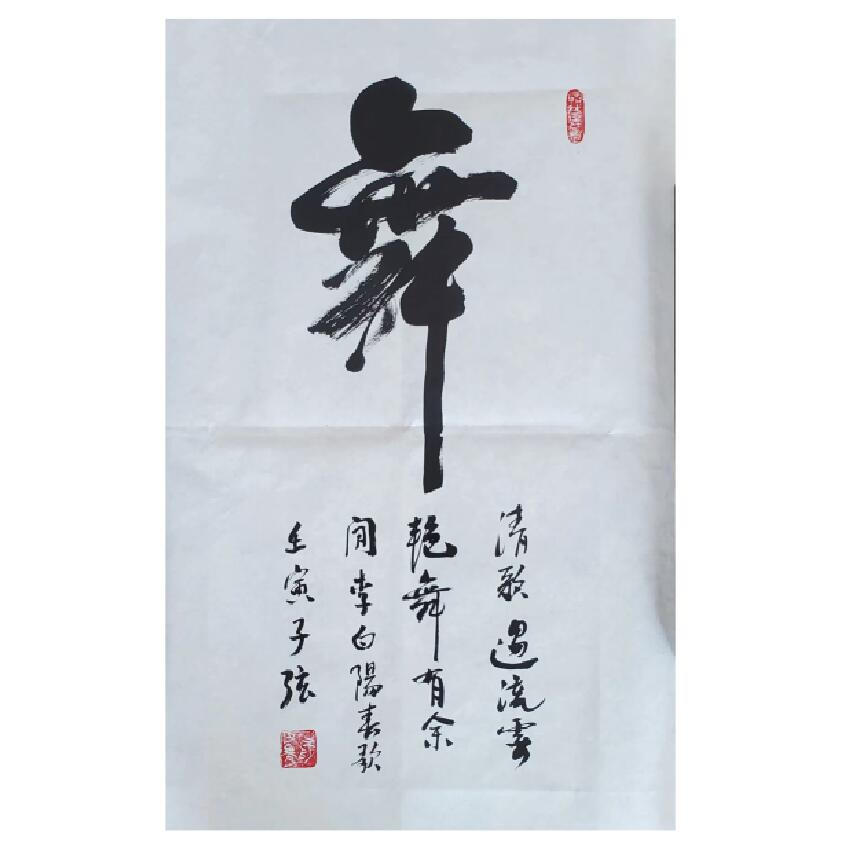 舞
清歌遏流雲
艳舞有余
閒李白陽春歌
壬寅子弦